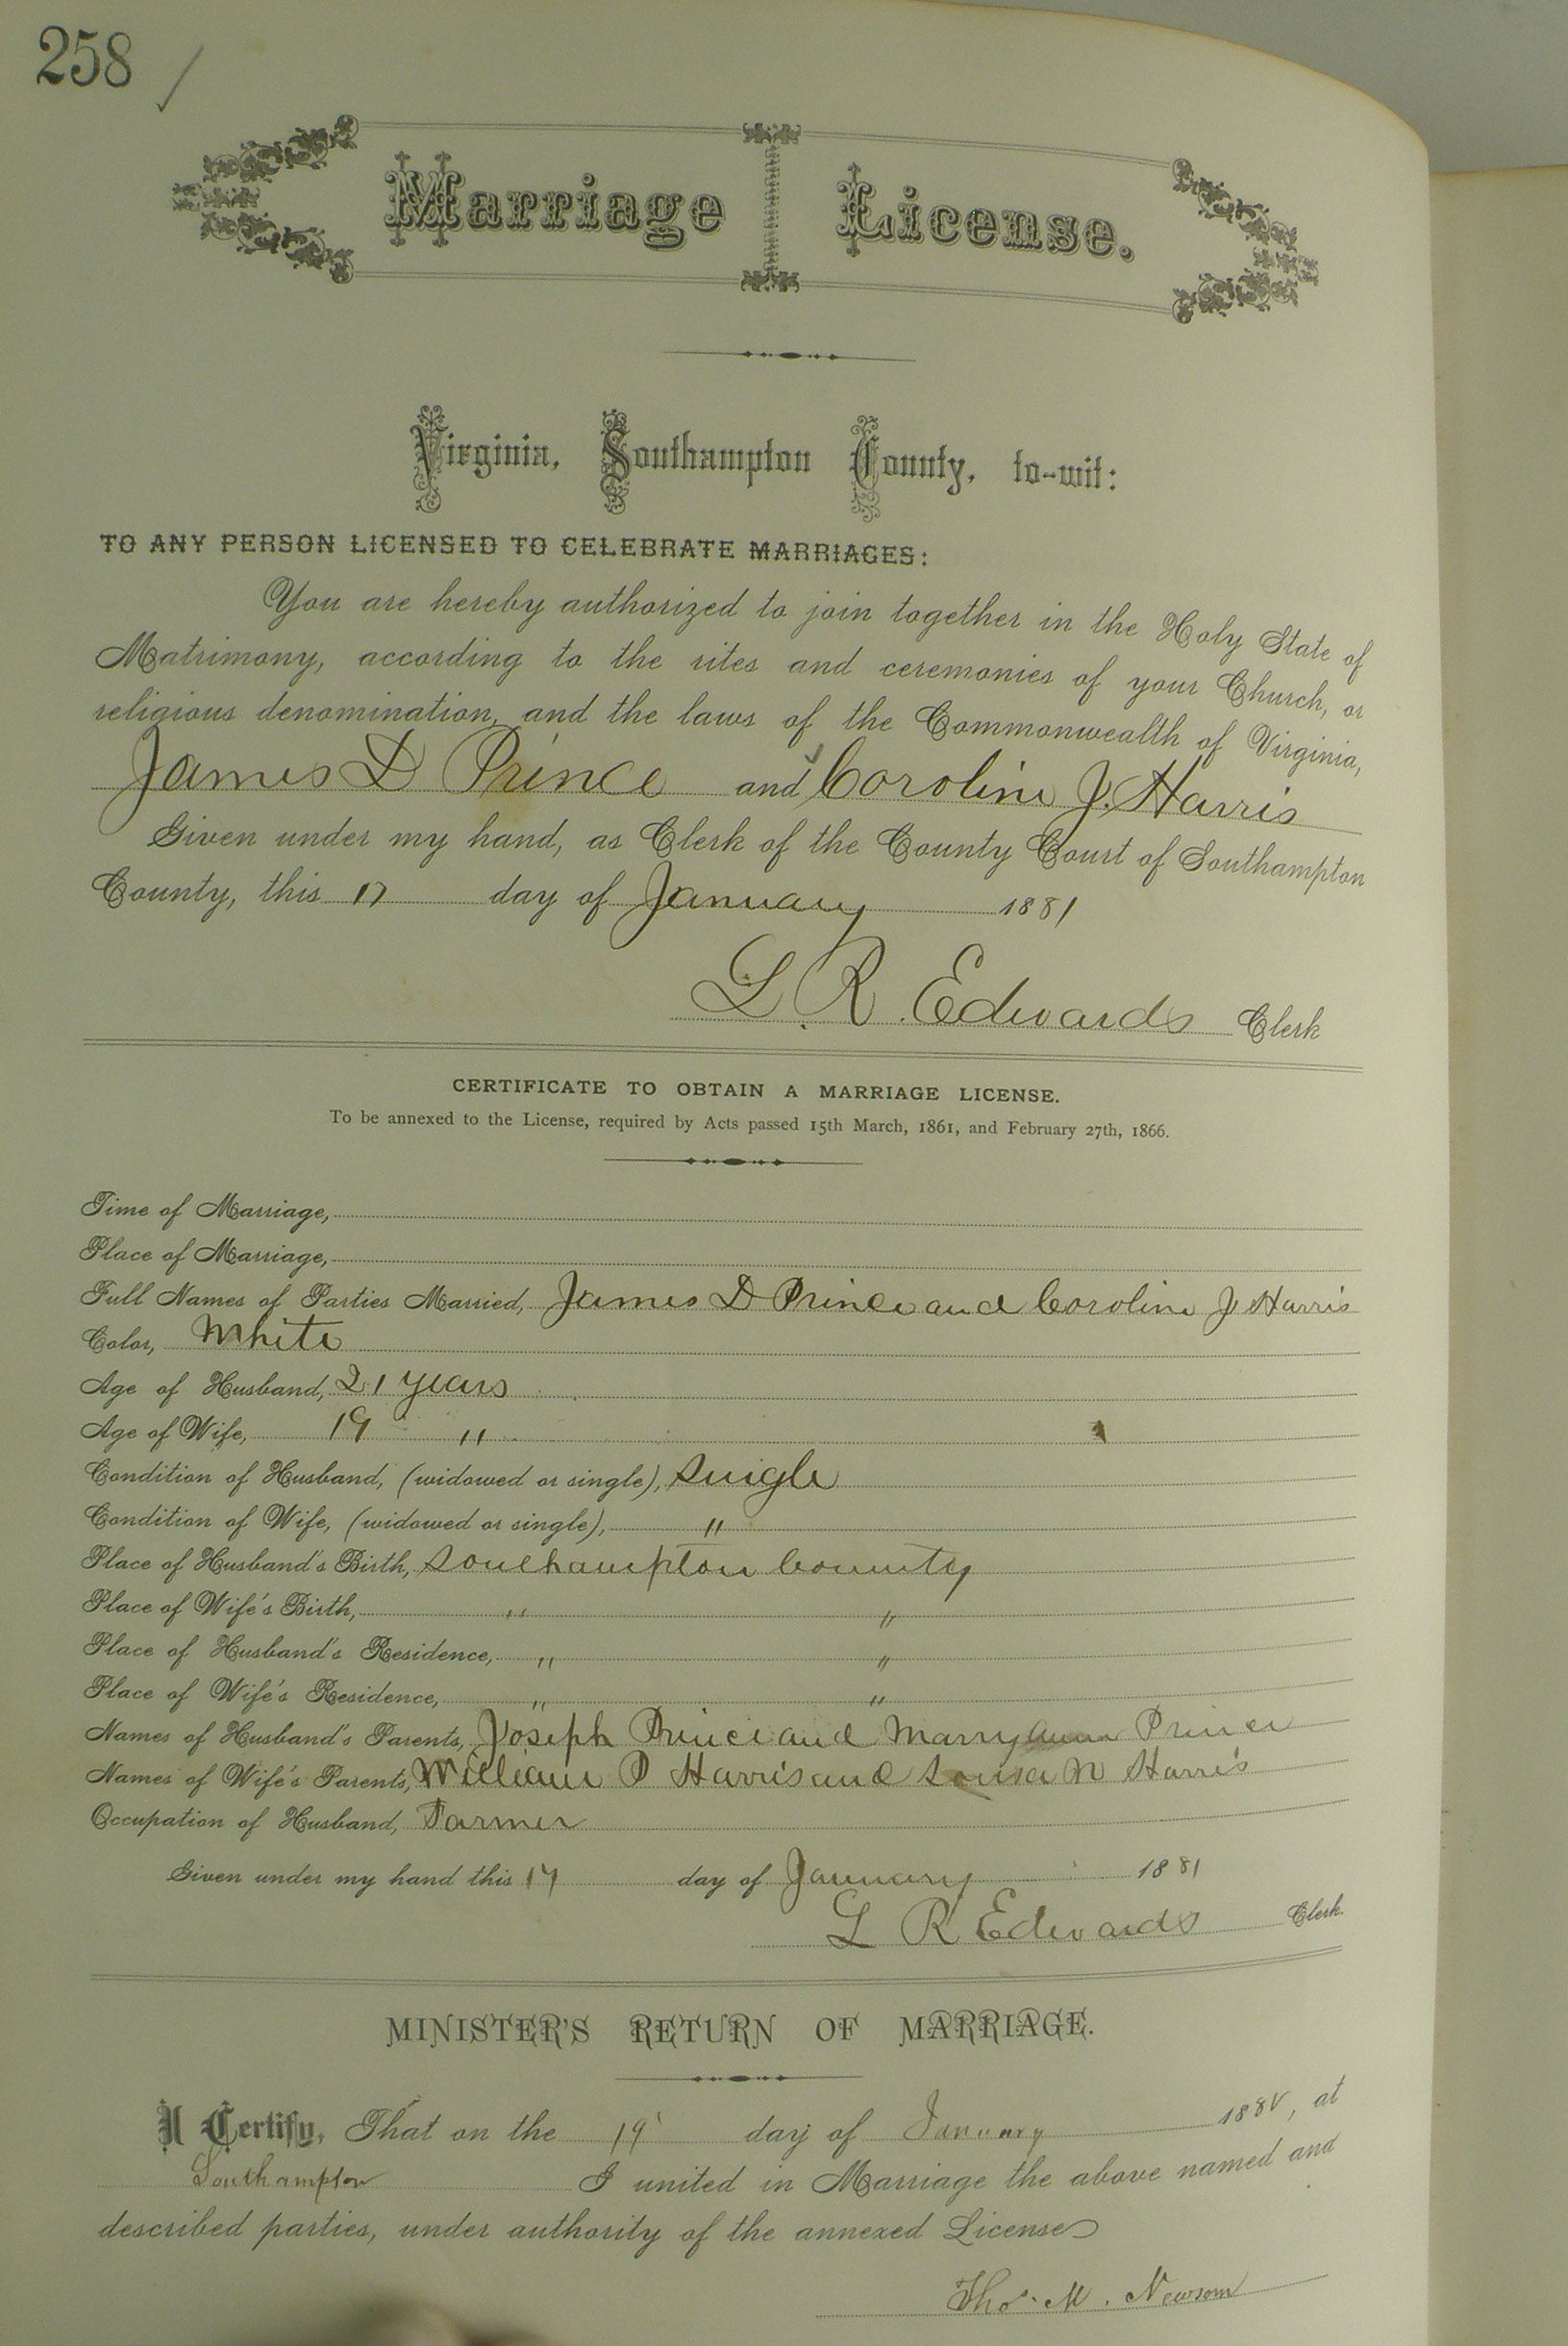 258
Marriage License.
Virginia, Southampton County, to-wit:
TO ANY PERSON LICENSED TO CELEBRATE MARRIAGES:
You are hereby authorized to join together in the Holy State of
Matrimony, according to the rites and ceremonies of your Church, or
religious denomination, and the laws of the Commonwealth of Virginia,
James D Prince and Coroline J. Harris
Given under my hand, as Clerk of the County Court of Southampton
County, this 17 day of January 1881
L. R. Edwards Clerk
CERTIFICATE TO OBTAIN A MARRIAGE LICENSE.
To be annexed to the License, required by Acts passed 15th March, 1861, and February 27th, 1866.
Time of Marriage,
Place of Marriage,
Full Names of Parties Married, James D Prince and Coroline J Harris
Color, White
Age of Husband, 21 years
Age of Wife, 19 "
Condition of Husband, (widowed or single), Single
Condition of Wife, (widowed or single), "
Place of Husband's Birth, Southampton County
Place of Wife's Birth, " "
Place of Husband's Residence, " "
Place of Wife's Residence, " "
Names of Husband's Parents, Joseph Prince and Marry Ann Prince
Names of Wife's Parents, William P Harris and N Harris
Occupation of Husband, Farmer
Given under my hand this 17 day of January 1881
L R Edwards Clerk.
MINISTER'S RETURN OF MARRIAGE.
I Certify, That on the 19 day of January 188 , at
Southampton I united in Marriage the above named and
described parties, under authority of the annexed License
Thos. M. Newsom